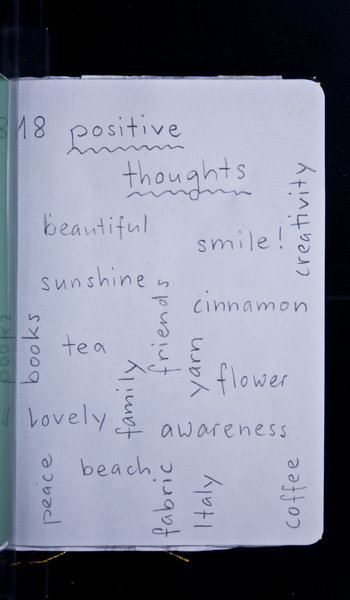 18 positive
thoughts
creativity
beautiful
smile!
sunshine
friends
cinnamon
books
tea
yarn
family
flower
lovely
awareness
peace
beach
fabric
Italy
coffee